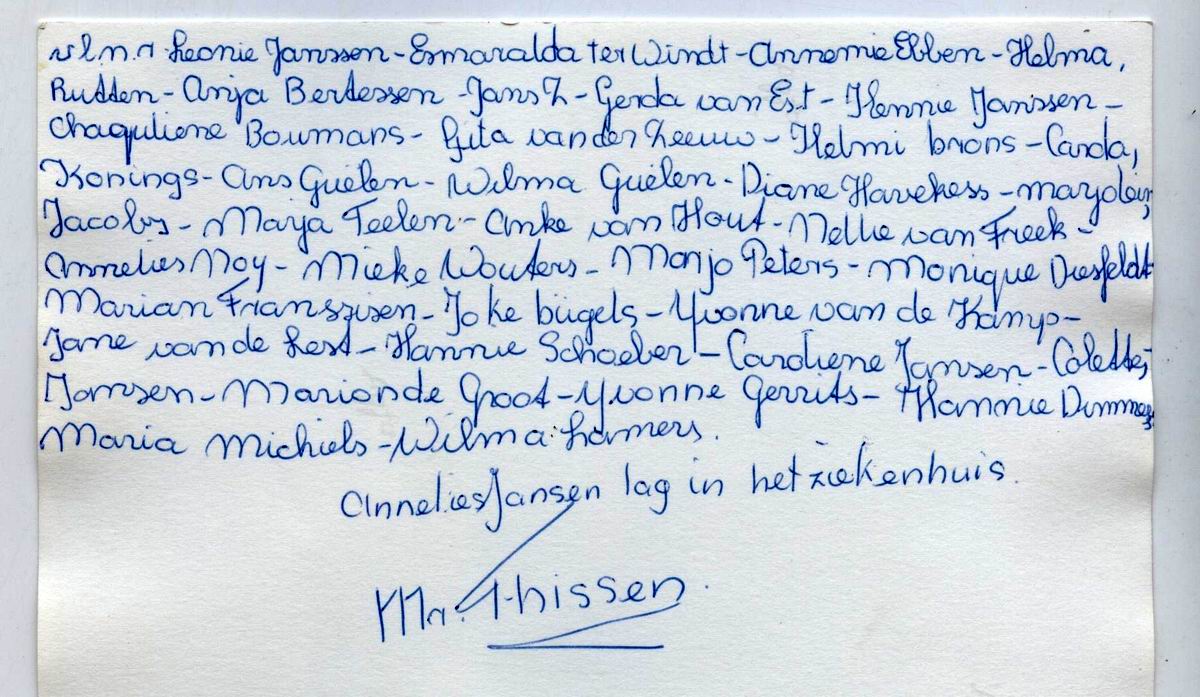 v.l.n.r Leonie Janssen - Esmaralda ter Windt - Annemie Ebben - Helma,
Rutten - Anja Bertessen - Jans Z - Gerda van Est - Hennie Janssen -
Chaquliene Boumans - Gita van der Zeeuw - Helmi brons - Carda,
Konings - Ans Guelen - Wilma Guelen - Diane Havekess - marjolein,
Jacobs - Marja Teelen - Anke van Hout - Nellie van Freek -
Annelies Noy - Mieke Wouters - Marjo Peters - Monique Diesfeldt
Marian Franszisen - Joke bügels - Yvonne van de Kamp -
Jane van de Lest - Hannie Schoeber - Caroliene Jansen - Colette,
Jansen - Marion de Groot - Yvonne Gerrits - Hannie
Maria Michiels - Wilma Lamers.
Annelies Jansen lag in het ziekenhuis.
Mr. Thissen.